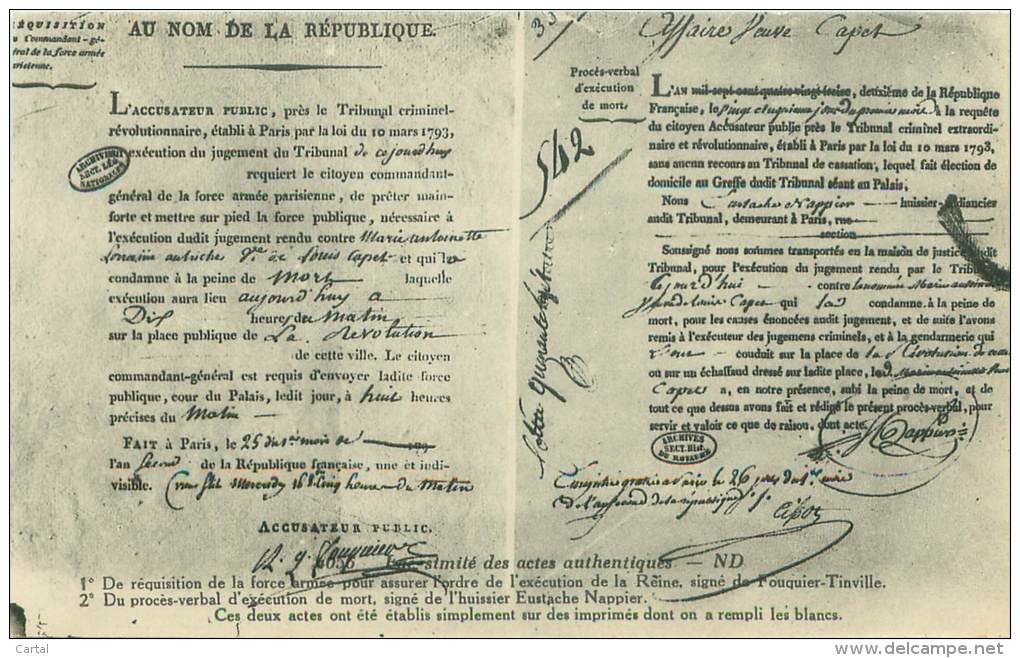 RÉQUISITION
Commandant-gé-
néral de la force armée
parisienne.
AU NOM DE LA RÉPUBLIQUE.
L'ACCUSATEUR PUBLIC, près le Tribunal criminel-
révolutionnaire, établi à Paris par la loi du 10 mars 1793,
exécution du jugement du Tribunal de cejourdhuy
requiert le citoyen commandant-
général de la force armée parisienne, de prêter main-
forte et mettre sur pied la force publique, nécessaire à
l'exécution dudit jugement rendu contre Marie antoinette
Lorraine autriche Vve de Louis Capet et qui la
condamne à la peine de Mort laquelle
exécution aura lieu aujourd'huy a
Dix heures du Matin
sur la place publique de La Revolution
de cette ville. Le citoyen
commandant-général est requis d'envoyer ladite force
publique, cour du Palais, ledit jour, à huit heures
précises du Matin
FAIT à Paris, le 25 du 1er mois de
l'an second de la République française, une et indi-
visible. Mercredy cinq heures du Matin
ACCUSATEUR PUBLIC.
ARCHIVES
SECT. LÉG.
NATIONALE
Affaire Veuve Capet
Procès-verbal
d'exécution
de mort.
542
L'AN mil sept cent quatre vingt treize, deuxième de la République
Française, le vingt cinquieme jour du premier mois à la requête
du citoyen Accusateur public près le Tribunal criminel extraordi-
naire et révolutionnaire, établi à Paris par la loi du 10 mars 1793,
sans aucun recours au Tribunal de cassation, lequel fait élection de
domicile au Greffe dudit Tribunal séant au Palais;
Nous Eustache Nappier huissier-audiancier
audit Tribunal, demeurant à Paris, rue
section
Soussigné nous sommes transportés en la maison de justice dudit
Tribunal, pour l'exécution du jugement rendu par le Tribunal
cejourd'hui contre la nommée Marie antoinette
Veuve de Louis Capet qui la condamne à la peine de
mort, pour les causes énoncées audit jugement, et de suite l'avons
remis à l'exécuteur des jugemens criminels, et à la gendarmerie qui
conduit sur la place de la Révolution de
ou sur un échaffaud dressé sur ladite place, lad. Marie antoinette Veuve
Capet a, en notre présence, subi la peine de mort, et de
tout ce que dessus avons fait et rédigé le présent procès-verbal, pour
servir et valoir ce que de raison, dont acte. Nappier
ARCHIVES
SECT. HIST.
DU ROYAUME
Enregistré gratis à Paris le 26
de l'an second de la république
Fac-similé des actes authentiques — ND
1° De réquisition de la force armée pour assurer l'ordre de l'exécution de la Reine, signé de Fouquier-Tinville.
2° Du procès-verbal d'exécution de mort, signé de l'huissier Eustache Nappier.
Ces deux actes ont été établis simplement sur des imprimés dont on a rempli les blancs.
Cartal
www.delcampe.net